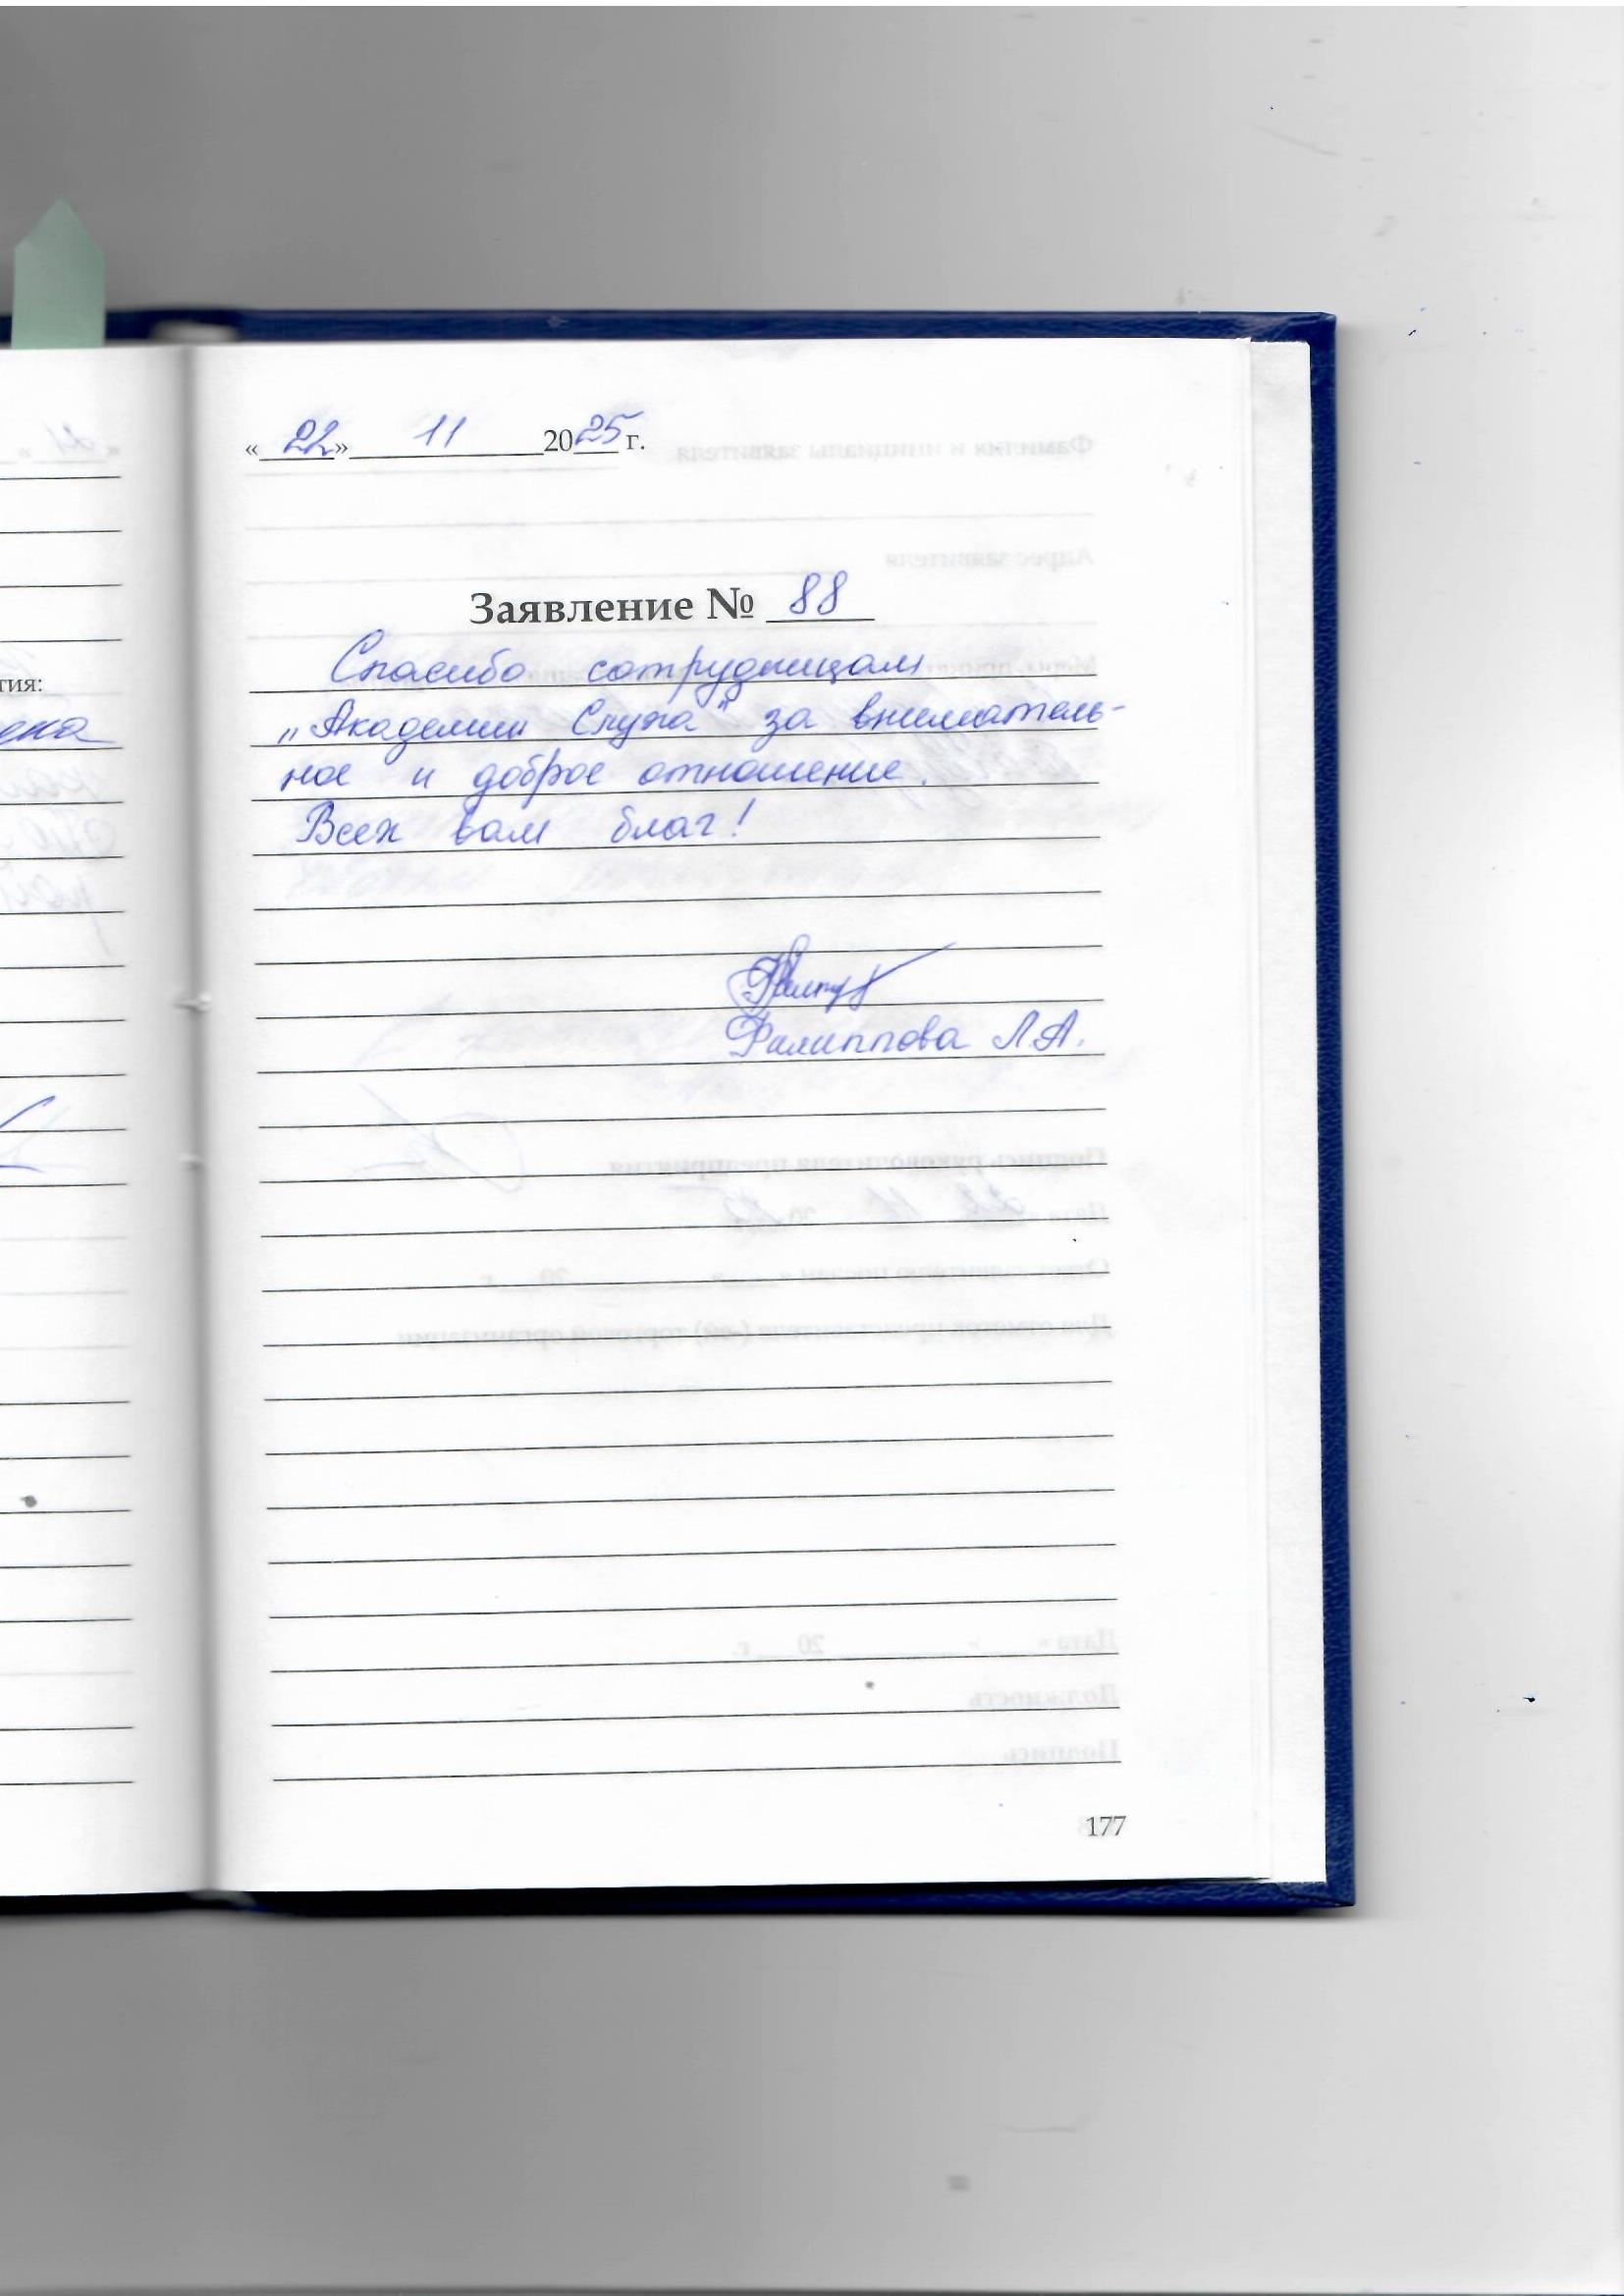 «22» 11 2025 г.
Заявление № 88
Спасибо сотрудницам
„Академии Слуха" за вниматель-
ное и доброе отношение.
Всех вам благ!
Филиппова Л.А.
тия:
177